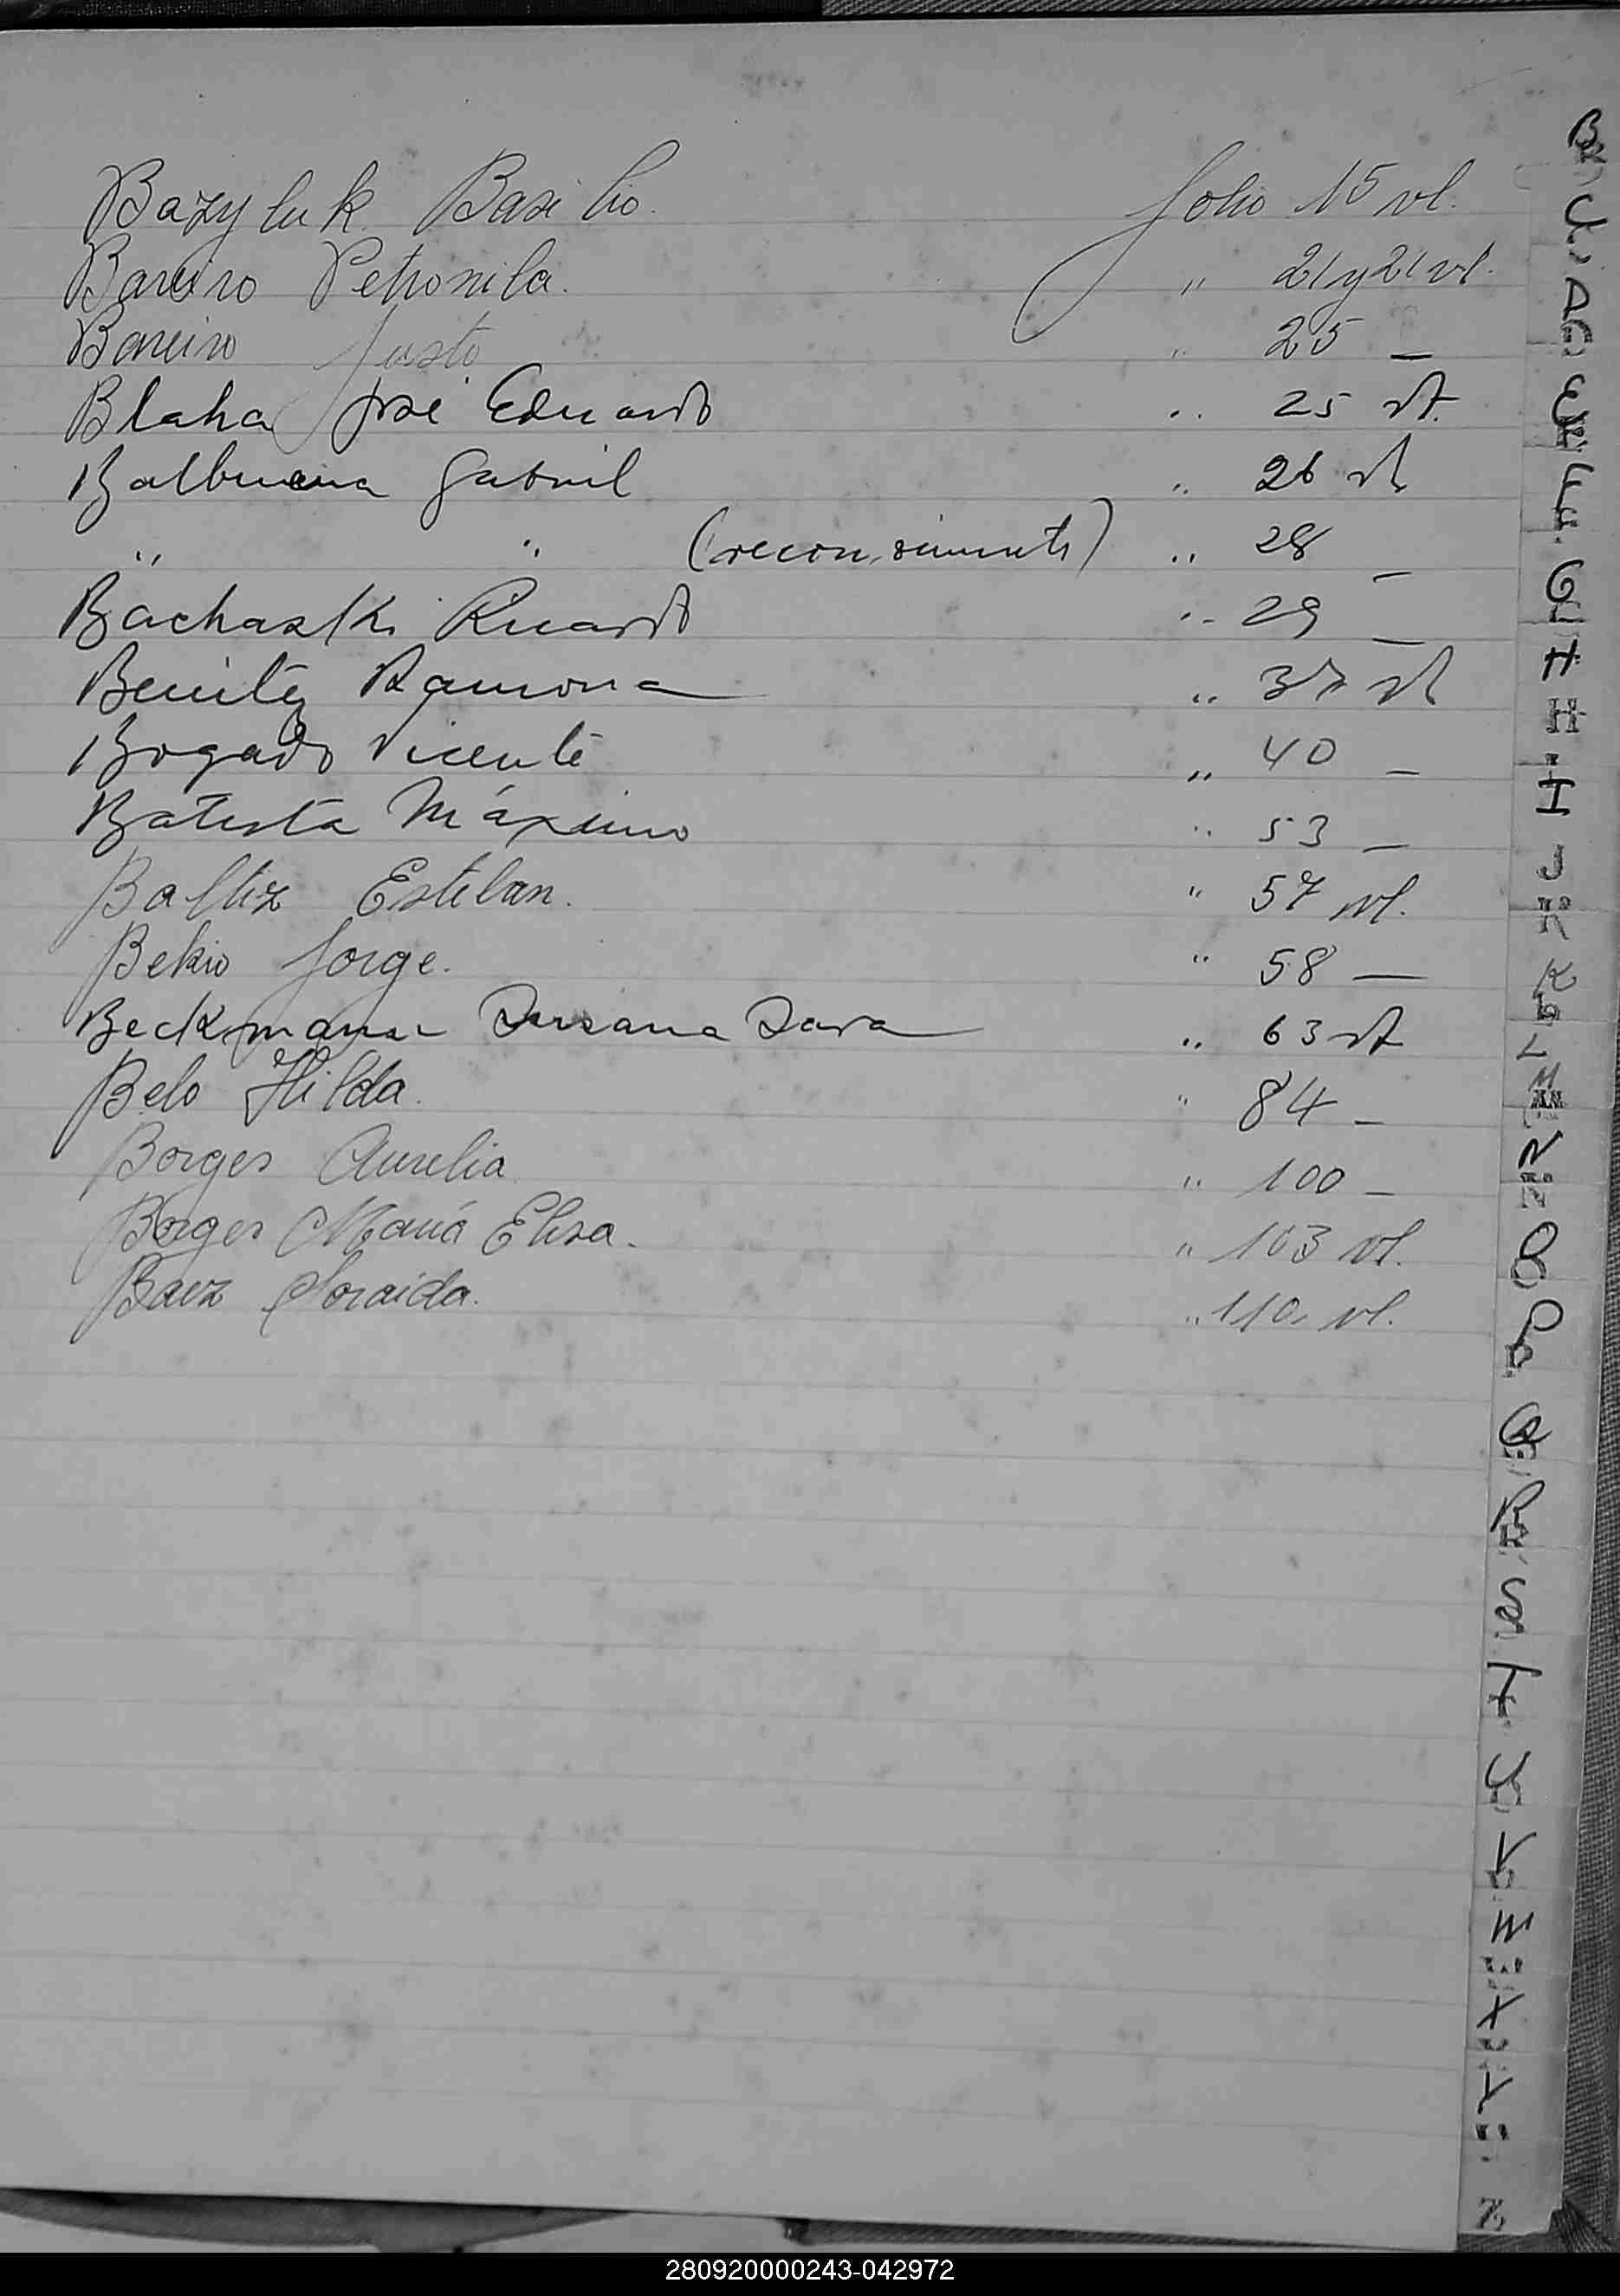 Bazyluk Basilio. folio 15 vt.
Bareiro Petronila. " 21 y 21 vt.
Bareiro Justo " 25 _
Blaha José Eduardo " 25 vt.
Balbuena Gabriel " 26 vt
" " (reconosimiento) " 28 _
Bachaski Ricardo " 29 _
Benitez Ramona " 37 vt
Bogado Vicente " 40 _
Batista Máximo " 53 _
Esteban. " 57 vt.
Bekio Jorge. " 58 _
Beckmann Susana Sara " 63 vt
Belo Hilda. " 84 _
Borges Aurelia " 100 _
Borges María Elisa. " 103 vt.
Baez Soraida. " 110 vt.
B
C
D
E
F
G
H
I
J
K
L
M
N
O
P
Q
R
S
T
U
V
W
X
Y
Z
280920000243-042972